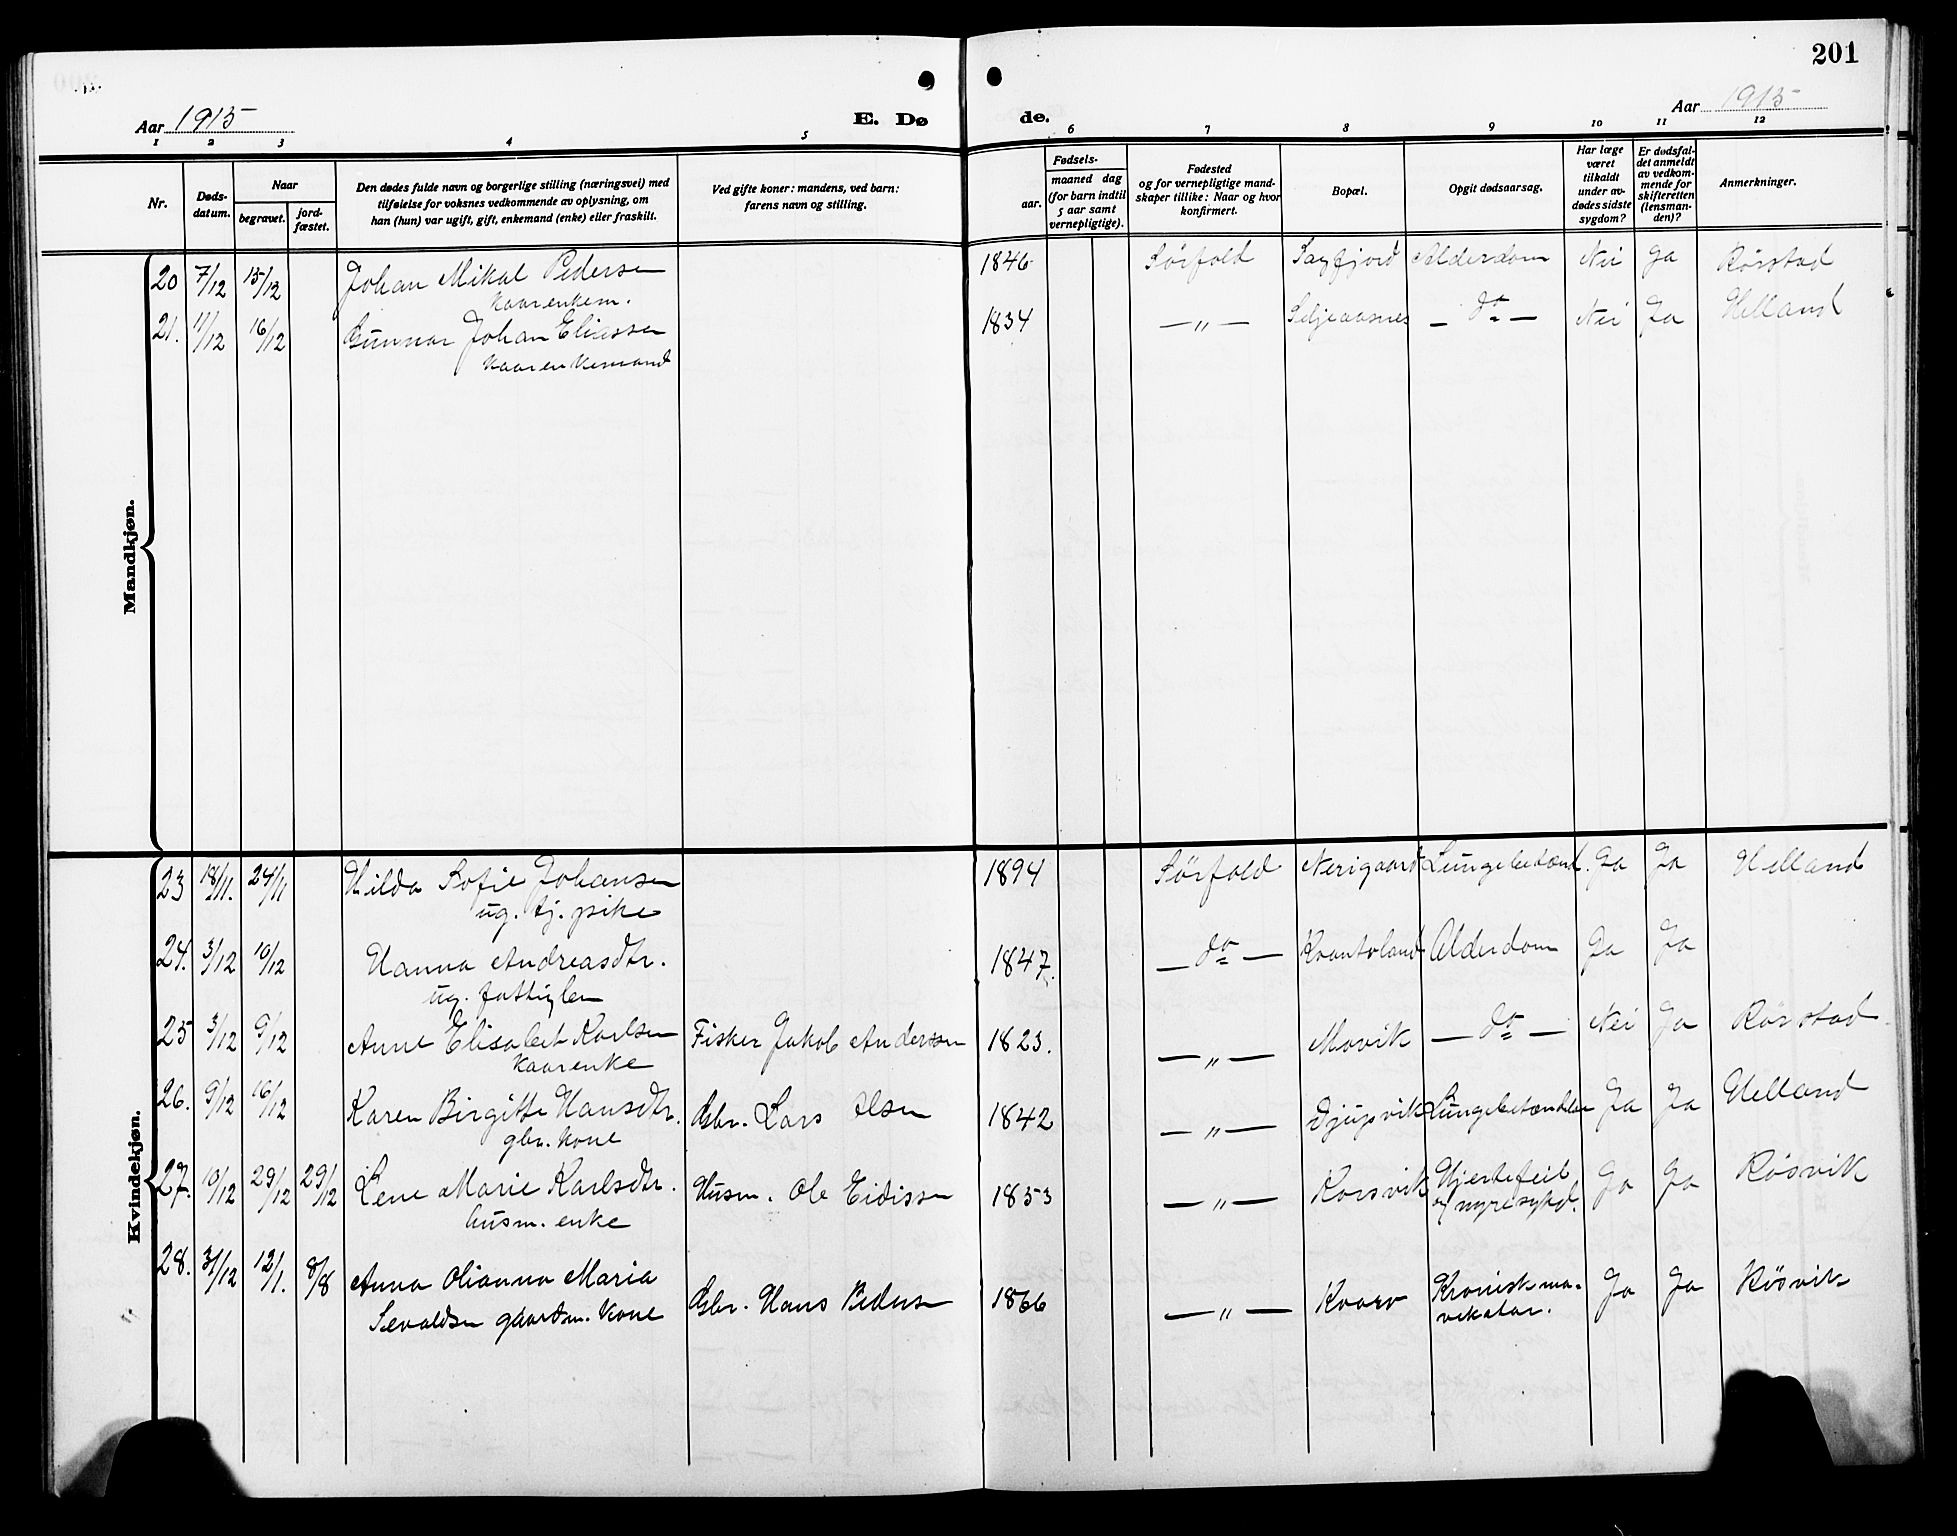 201
Aar 1915
E. Døde.
Aar 1915
1 2 3 4 5 6 7 8 9 10 11 12
Nr.
Døds-
datum.
Naar
begravet.
jord-
fæstet.
Den dødes fulde navn og borgerlige stilling (næringsvei) med
tilføielse for voksnes vedkommende av oplysning, om
han (hun) var ugift, gift, enkemand (enke) eller fraskilt.
Ved gifte koner: mandens, ved barn:
farens navn og stilling.
Fødsels-
aar.
maaned dag
(for barn indtil
5 aar samt
vernepligtige).
Fødested
og for vernepligtige mand-
skaper tillike: Naar og hvor
konfirmert.
Bopæl.
Opgit dødsaarsag.
Har læge
været
tilkaldt
under av-
dødes sidste
sygdom?
Er dødsfal-
det anmeldt
av vedkom-
mende for
skifteretten
(lensman-
den)?
Anmerkninger.
Mandkjøn.
20 7/12 15/12 Johan Mikal Pedersen 1846 Sørfold Sagfjord Alderdom Nei Ja Rørstad
kaarenkem.
21. 11/12 16/12 Gunnar Johan Eliassen 1834 —"— Seljeaasnes — do — Nei Ja Helland
kaarenkemand
Kvindekjøn.
23 18/11. 24/11 Hilda Sofie Johansen 1894 Sørfold Nerigaard Lungebetænd. Ja Ja Helland
ug. tj. pike
24. 3/12 10/12 Hanna Andreasdtr. 1847. — do — Kvantoland Alderdom Ja Ja
ug. fattiglem
25 3/12 9/12 Anne Elisabet Karlsen Fisker Jakob Andersen 1823. —"— Movik — do — Nei Ja Rørstad
kaarenke
26. 9/12 16/12 Karen Birgitte Hansdtr. Gbr. Lars Olsen 1842 —"— Djupvik Lungebetændelse Ja Ja Helland
gbr. kone
27. 10/12 29/12 29/12 Lene Marie Karlsdtr. Husm. Ole Eidissen 1853 —"— Korsvik Hjertefeil Ja Ja Røsvik
husm. enke og nyresykd.
28. 31/12 12/1. 8/8 Anna Olianna Maria Gbr. Hans Pedersen 1866 —"— Kvarv Kronisk ma- Ja Ja Røsvik
Sevaldsen gaardm. kone vekatar.